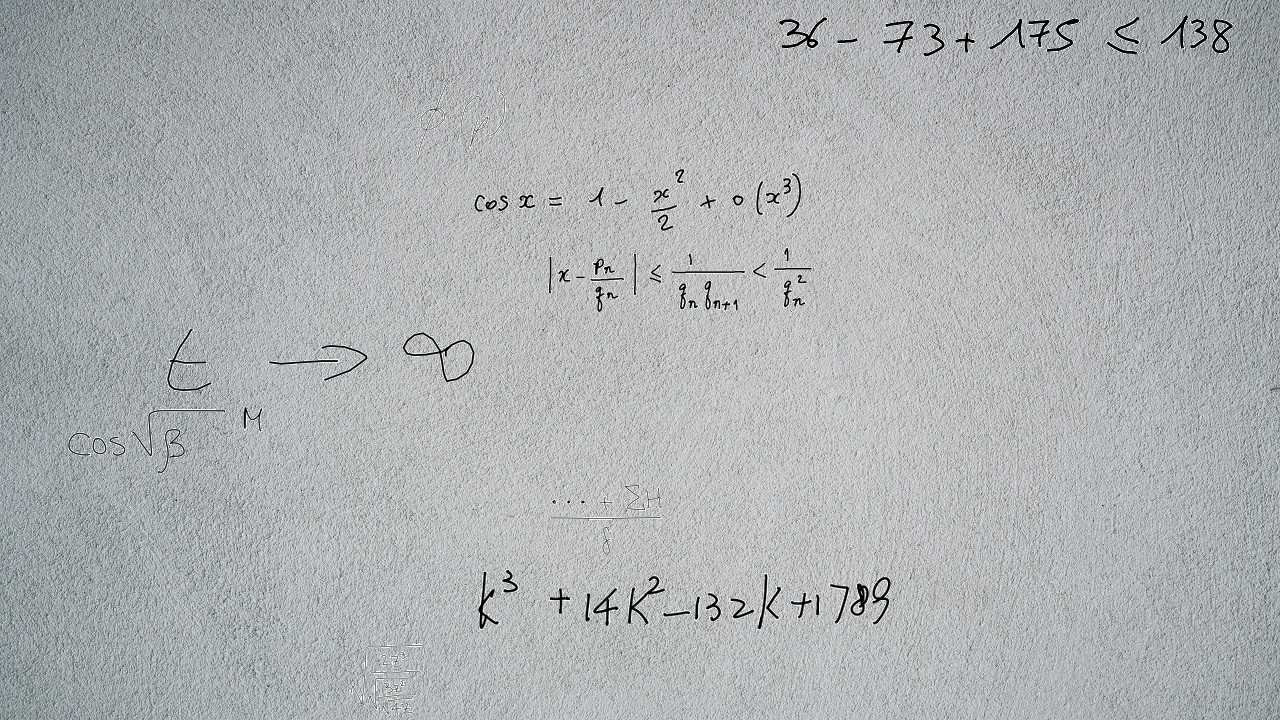 36 - 73 + 175 ≤ 138
cos x = 1 - x²/2 + o(x³)
|x - pₙ/qₙ| ≤ 1/(qₙ qₙ₊₁) < 1/qₙ²
t → ∞
cos√β M
... + ΣH / 8
k³ + 14k² - 132k + 1789